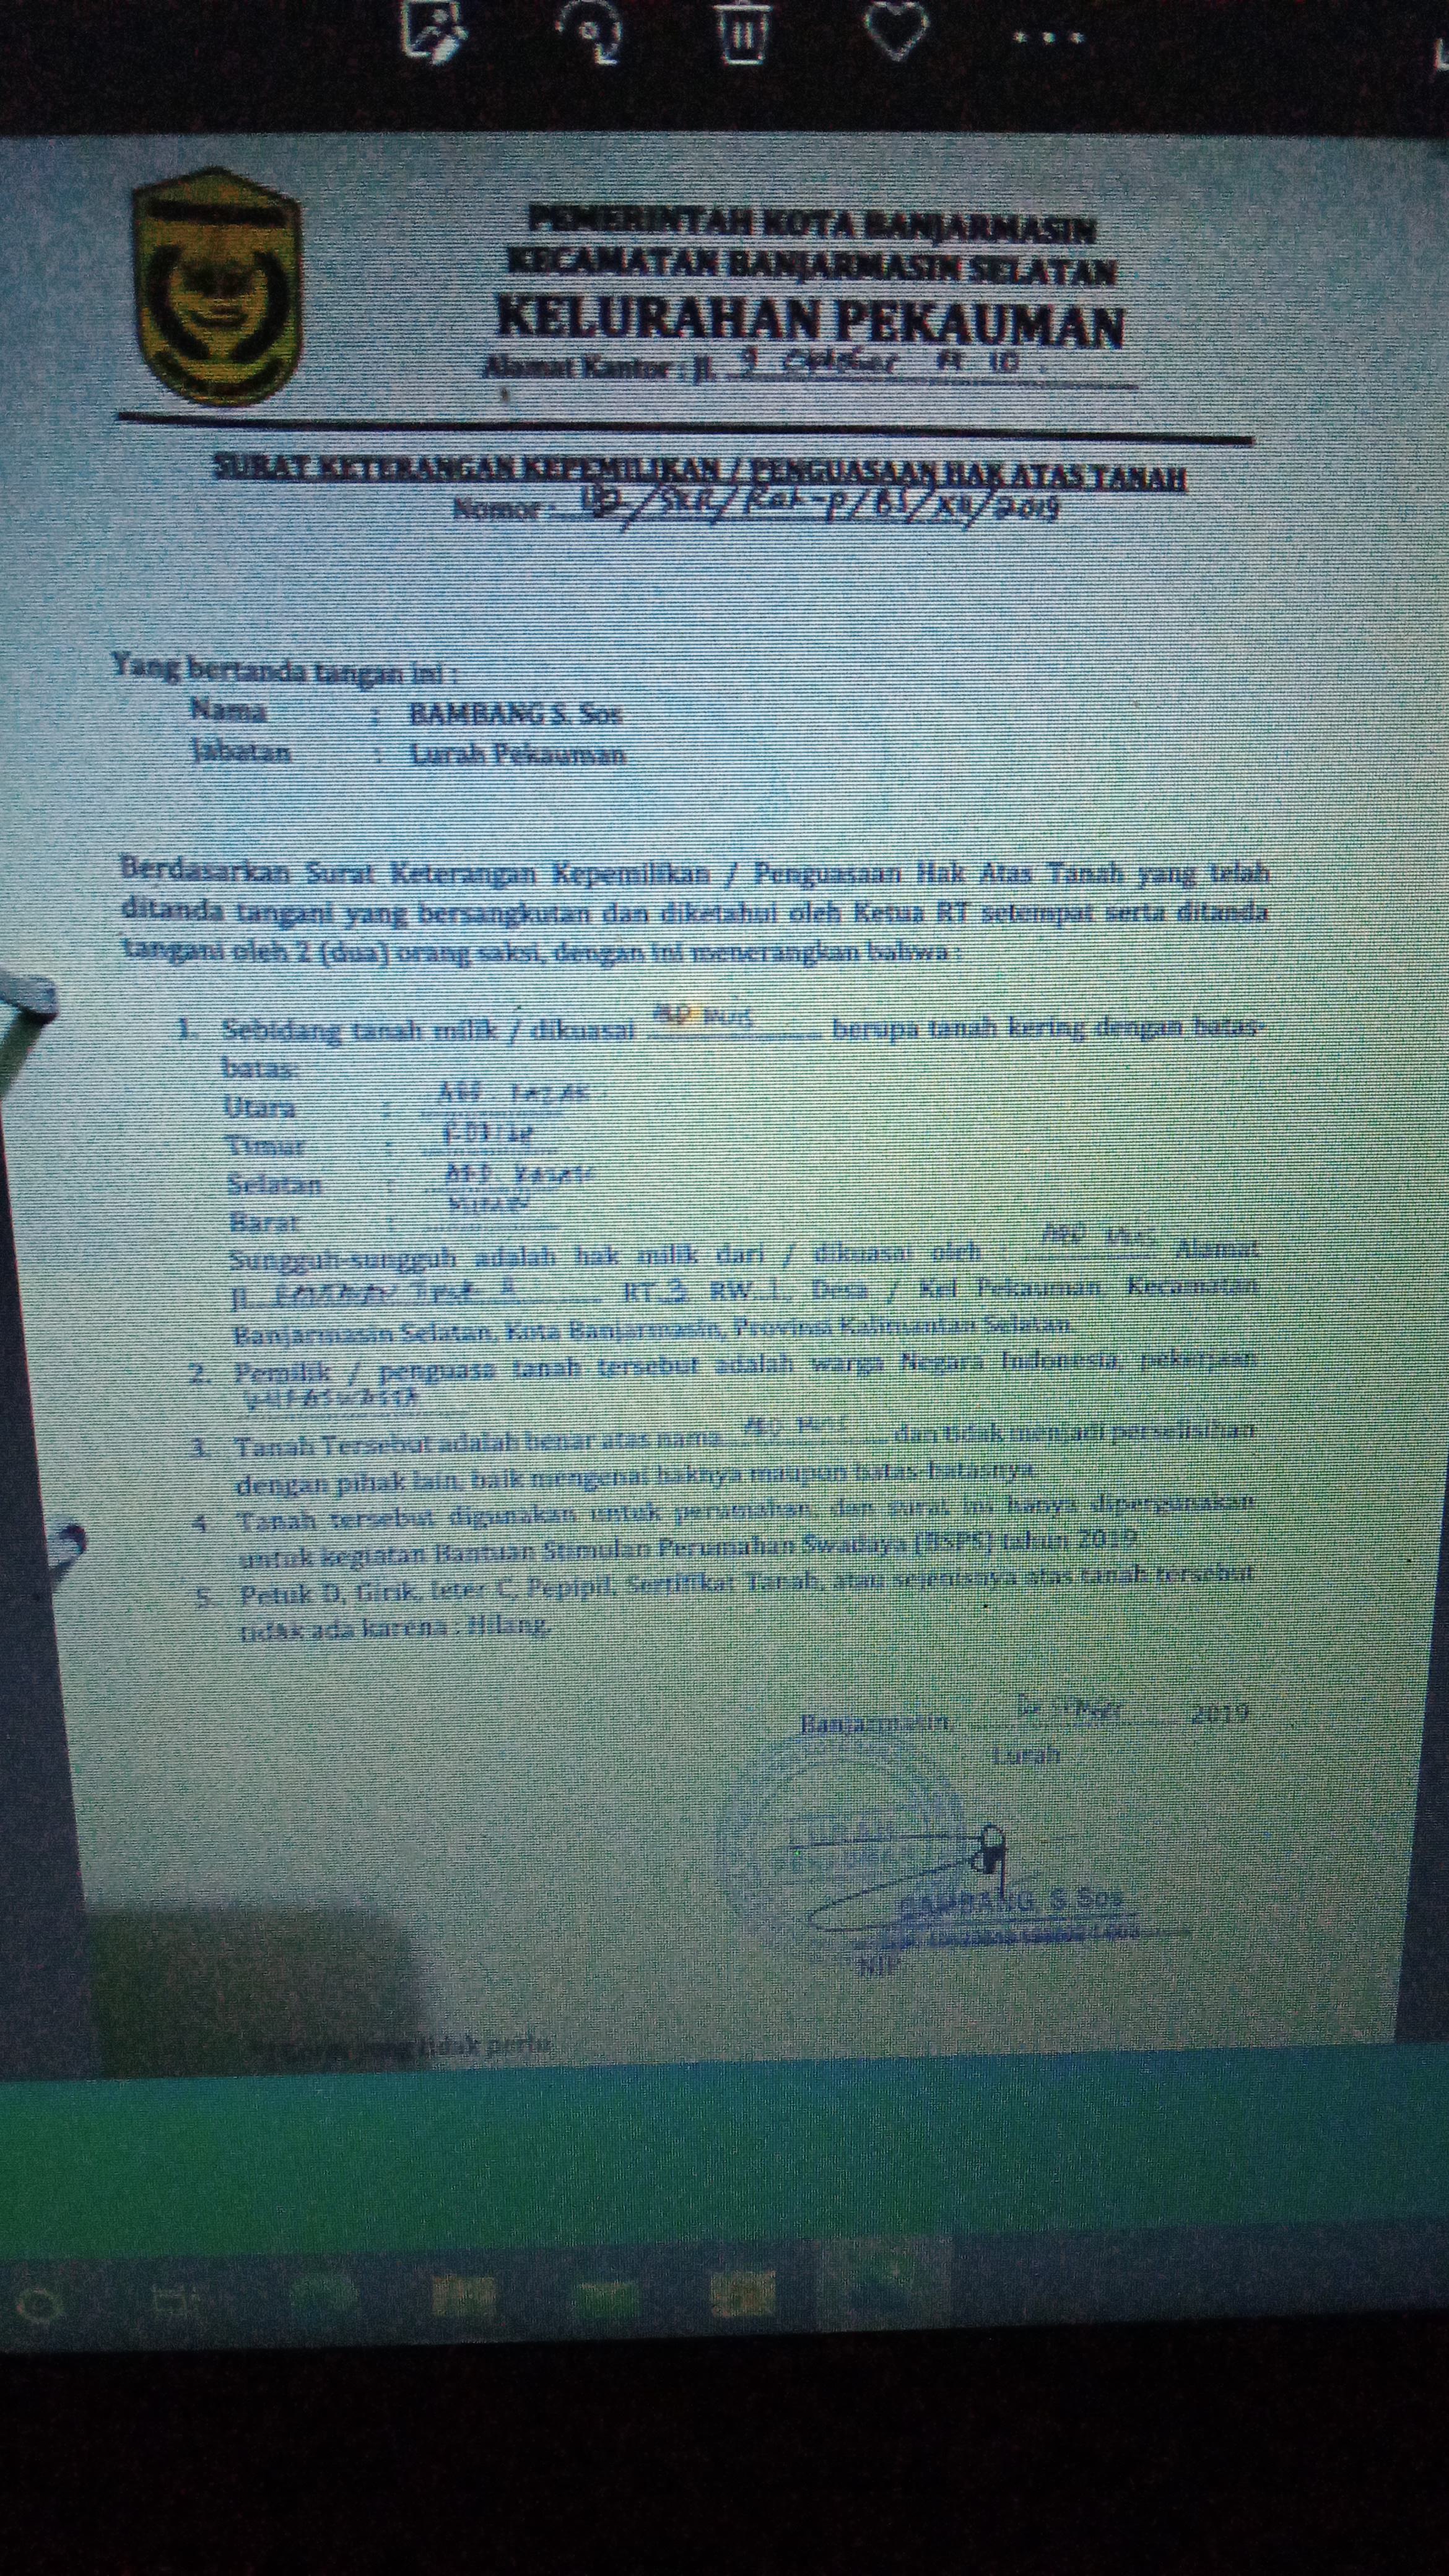 PEMERINTAH KOTA BANJARMASIN
KECAMATAN BANJARMASIN SELATAN
KELURAHAN PEKAUMAN
Alamat Kantor : Jl. 9 Oktober 10
SURAT KETERANGAN KEPEMILIKAN / PENGUASAAN HAK ATAS TANAH
Nomor : /XII/2019
Yang bertanda tangan ini :
Nama : BAMBANG S. Sos
Jabatan : Lurah Pekauman
Berdasarkan Surat Keterangan Kepemilikan / Penguasaan Hak Atas Tanah yang telah
ditanda tangani yang bersangkutan dan diketahui oleh Ketua RT setempat serta ditanda
tangani oleh 2 (dua) orang saksi, dengan ini menerangkan bahwa :
1. Sebidang tanah milik / dikuasai berupa tanah kering dengan batas-
batas:
Utara :
Timur :
Selatan :
Barat :
Sungguh-sungguh adalah hak milik dari / dikuasai oleh : Alamat
Jl. RT.3 RW.1, Desa / Kel Pekauman Kecamatan
Banjarmasin Selatan, Kota Banjarmasin, Provinsi Kalimantan Selatan.
2. Pemilik / penguasa tanah tersebut adalah warga Negara Indonesia, pekerjaan
3. Tanah Tersebut adalah benar atas nama dan tidak menjadi perselisihan
dengan pihak lain, baik mengenai haknya maupun batas-batasnya
4. Tanah tersebut digunakan untuk perumahan, dan surat ini hanya dipergunakan
untuk kegiatan Bantuan Stimulan Perumahan Swadaya (BSPS) tahun 2019
5. Petuk D, Girik, leter C, Pepipil, Sertifikat Tanah, atau sejenisnya atas tanah tersebut
tidak ada karena : Hilang.
Banjarmasin, 2019
Lurah
BAMBANG S.Sos
NIP
yang tidak perlu